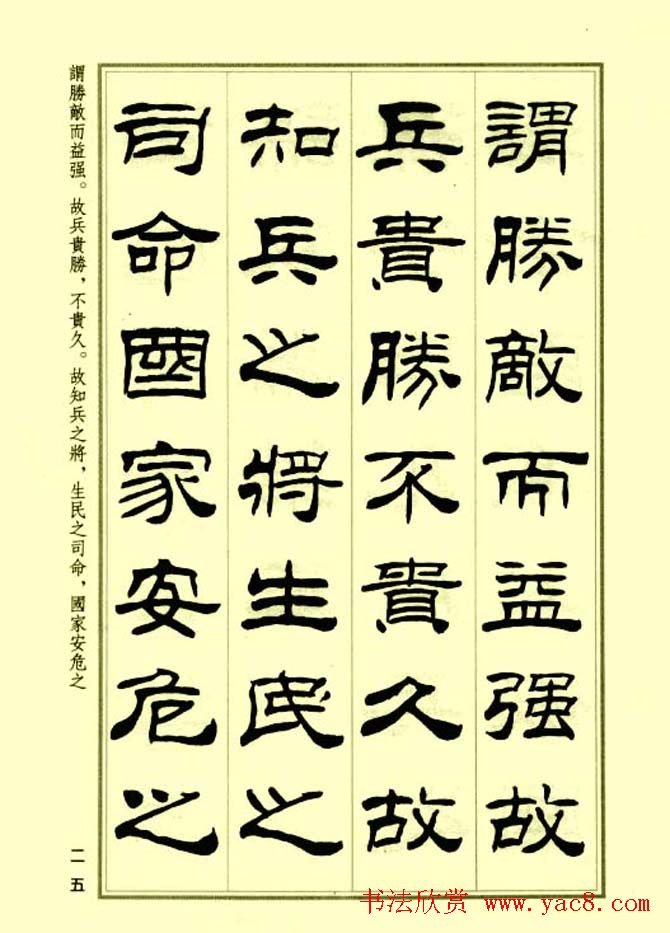 謂勝敵而益强故
兵貴勝不貴久故
知兵之將生民之
司命國家安危之
謂勝敵而益强。故兵貴勝，不貴久。故知兵之將，生民之司命，國家安危之
二五
书法欣赏 www.yac8.com